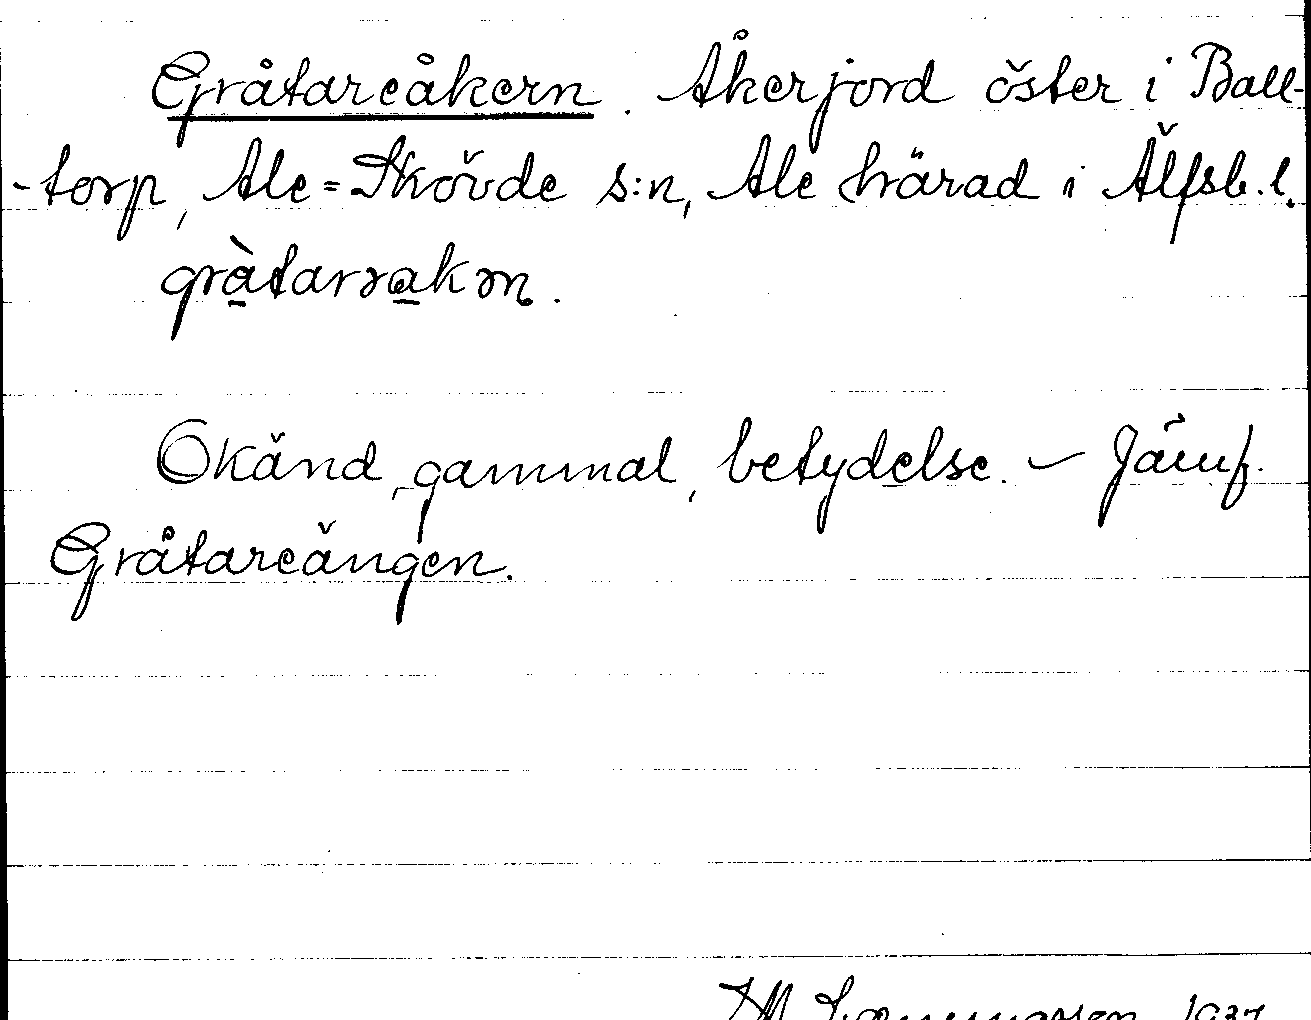 Gråtareåkern. Åkerjord öster i Ball-
-torp, Ale=Skövde s:n, Ale härad i Älfsb. l.
grå̀tarɘåkɘn.
Okänd, gammal, betydelse. – Jämf.
Gråtareängen.
1937